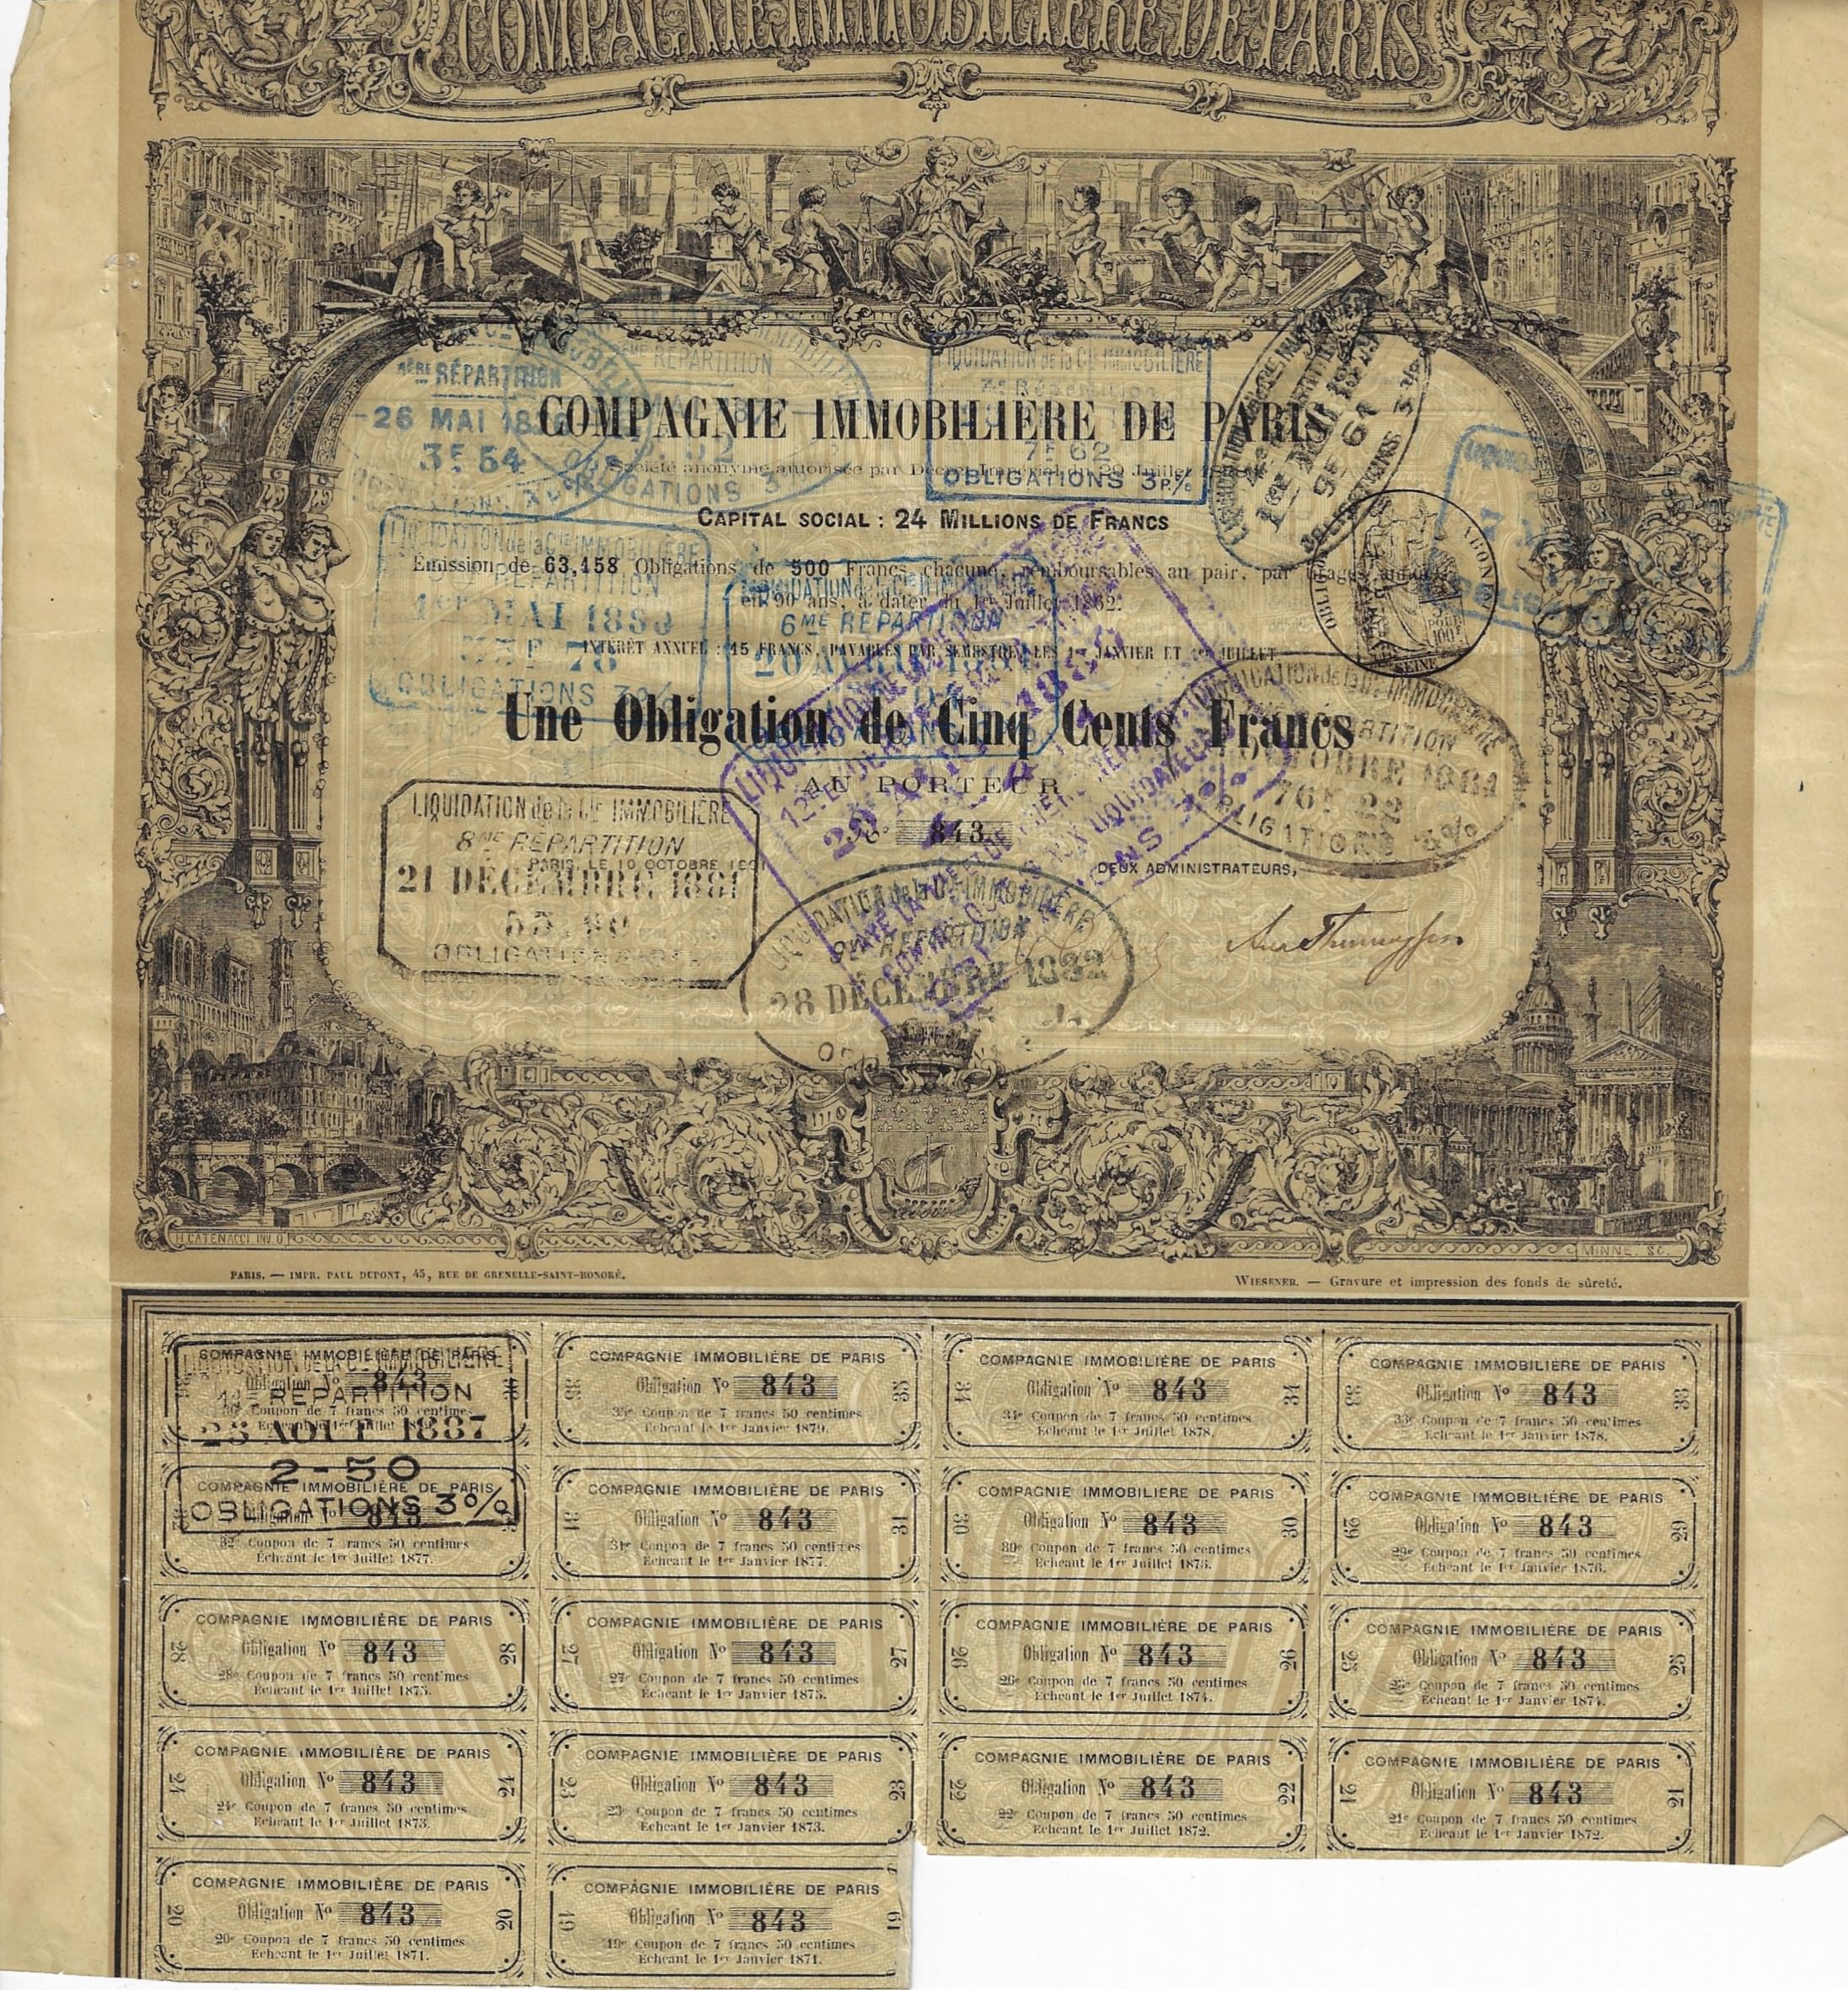 COMPAGNIE IMMOBILIÈRE DE PARIS
COMPAGNIE IMMOBILIÈRE DE PARIS
Société anonyme autorisée par Décret Impérial du 29 Juillet
CAPITAL SOCIAL : 24 MILLIONS DE FRANCS
Émission de 63,158 Obligations de 500 Francs chacune, remboursables au pair, par tirages
en 90 ans, à dater du 1er Juillet 1862.
INTÉRÊT ANNUEL : 15 FRANCS, PAYABLES PAR SEMESTRE, LES 1er JANVIER ET 1er JUILLET
Une Obligation de Cinq Cents Francs
AU PORTEUR
No 843
PARIS, LE 10 OCTOBRE
DEUX ADMINISTRATEURS,
RÉPARTITION
26 MAI
3F 54
RÉPARTITION
OBLIGATIONS 3
LIQUIDATION de la Cie IMMOBILIÈRE
7F 62
OBLIGATIONS 3P%
9F 61
LIQUIDATION de la Cie IMMOBILIÈRE
RÉPARTITION
1er MAI 1880
OBLIGATIONS 3%
6ME RÉPARTITION
LIQUIDATION de la Cie IMMOBILIÈRE
8ME RÉPARTITION
21 DÉCEMBRE 1881
LIQUIDATION de la Cie IMMOBILIÈRE
9me RÉPARTITION
28 DÉCEMBRE 1882
LIQUIDATION de la Cie IMMOBILIÈRE
OCTOBRE 1884
76F 22
OBLIGATIONS 3%
TIMBRE
ABONNEMt
SEINE
H. CATENACCI INV. D.
MINNE. SC.
PARIS. — IMPR. PAUL DUPONT, 45, RUE DE GRENELLE-SAINT-HONORÉ.
WIESENER. — Gravure et impression des fonds de sûreté.
COMPAGNIE IMMOBILIÈRE DE PARIS
Obligation No 843
36e Coupon de 7 francs 50 centimes
LIQUIDATION DE LA Cie IMMOBILIÈRE
RÉPARTITION
25 AOUT 1887
2-50
OBLIGATIONS 3%
COMPAGNIE IMMOBILIÈRE DE PARIS
35 Obligation No 843 35
35e Coupon de 7 francs 50 centimes
Echéant le 1er Janvier 1879.
COMPAGNIE IMMOBILIÈRE DE PARIS
34 Obligation No 843 34
34e Coupon de 7 francs 50 centimes
Echéant le 1er Juillet 1878.
COMPAGNIE IMMOBILIÈRE DE PARIS
33 Obligation No 843 33
33e Coupon de 7 francs 50 centimes
Echéant le 1er Janvier 1878.
COMPAGNIE IMMOBILIÈRE DE PARIS
Obligation No 843
32e Coupon de 7 francs 50 centimes
Echéant le 1er Juillet 1877.
COMPAGNIE IMMOBILIÈRE DE PARIS
31 Obligation No 843 31
31e Coupon de 7 francs 50 centimes
Echéant le 1er Janvier 1877.
COMPAGNIE IMMOBILIÈRE DE PARIS
30 Obligation No 843 30
30e Coupon de 7 francs 50 centimes
Echéant le 1er Juillet 1876.
COMPAGNIE IMMOBILIÈRE DE PARIS
29 Obligation No 843 29
29e Coupon de 7 francs 50 centimes
Echéant le 1er Janvier 1876.
COMPAGNIE IMMOBILIÈRE DE PARIS
28 Obligation No 843 28
28e Coupon de 7 francs 50 centimes
Echéant le 1er Juillet 1875.
COMPAGNIE IMMOBILIÈRE DE PARIS
27 Obligation No 843 27
27e Coupon de 7 francs 50 centimes
Echéant le 1er Janvier 1875.
COMPAGNIE IMMOBILIÈRE DE PARIS
26 Obligation No 843 26
26e Coupon de 7 francs 50 centimes
Echéant le 1er Juillet 1874.
COMPAGNIE IMMOBILIÈRE DE PARIS
25 Obligation No 843 25
25e Coupon de 7 francs 50 centimes
Echéant le 1er Janvier 1874.
COMPAGNIE IMMOBILIÈRE DE PARIS
24 Obligation No 843 24
24e Coupon de 7 francs 50 centimes
Echéant le 1er Juillet 1873.
COMPAGNIE IMMOBILIÈRE DE PARIS
23 Obligation No 843 23
23e Coupon de 7 francs 50 centimes
Echéant le 1er Janvier 1873.
COMPAGNIE IMMOBILIÈRE DE PARIS
22 Obligation No 843 22
22e Coupon de 7 francs 50 centimes
Echéant le 1er Juillet 1872.
COMPAGNIE IMMOBILIÈRE DE PARIS
21 Obligation No 843 21
21e Coupon de 7 francs 50 centimes
Echéant le 1er Janvier 1872.
COMPAGNIE IMMOBILIÈRE DE PARIS
20 Obligation No 843 20
20e Coupon de 7 francs 50 centimes
Echéant le 1er Juillet 1871.
COMPAGNIE IMMOBILIÈRE DE PARIS
19 Obligation No 843 19
19e Coupon de 7 francs 50 centimes
Echéant le 1er Janvier 1871.